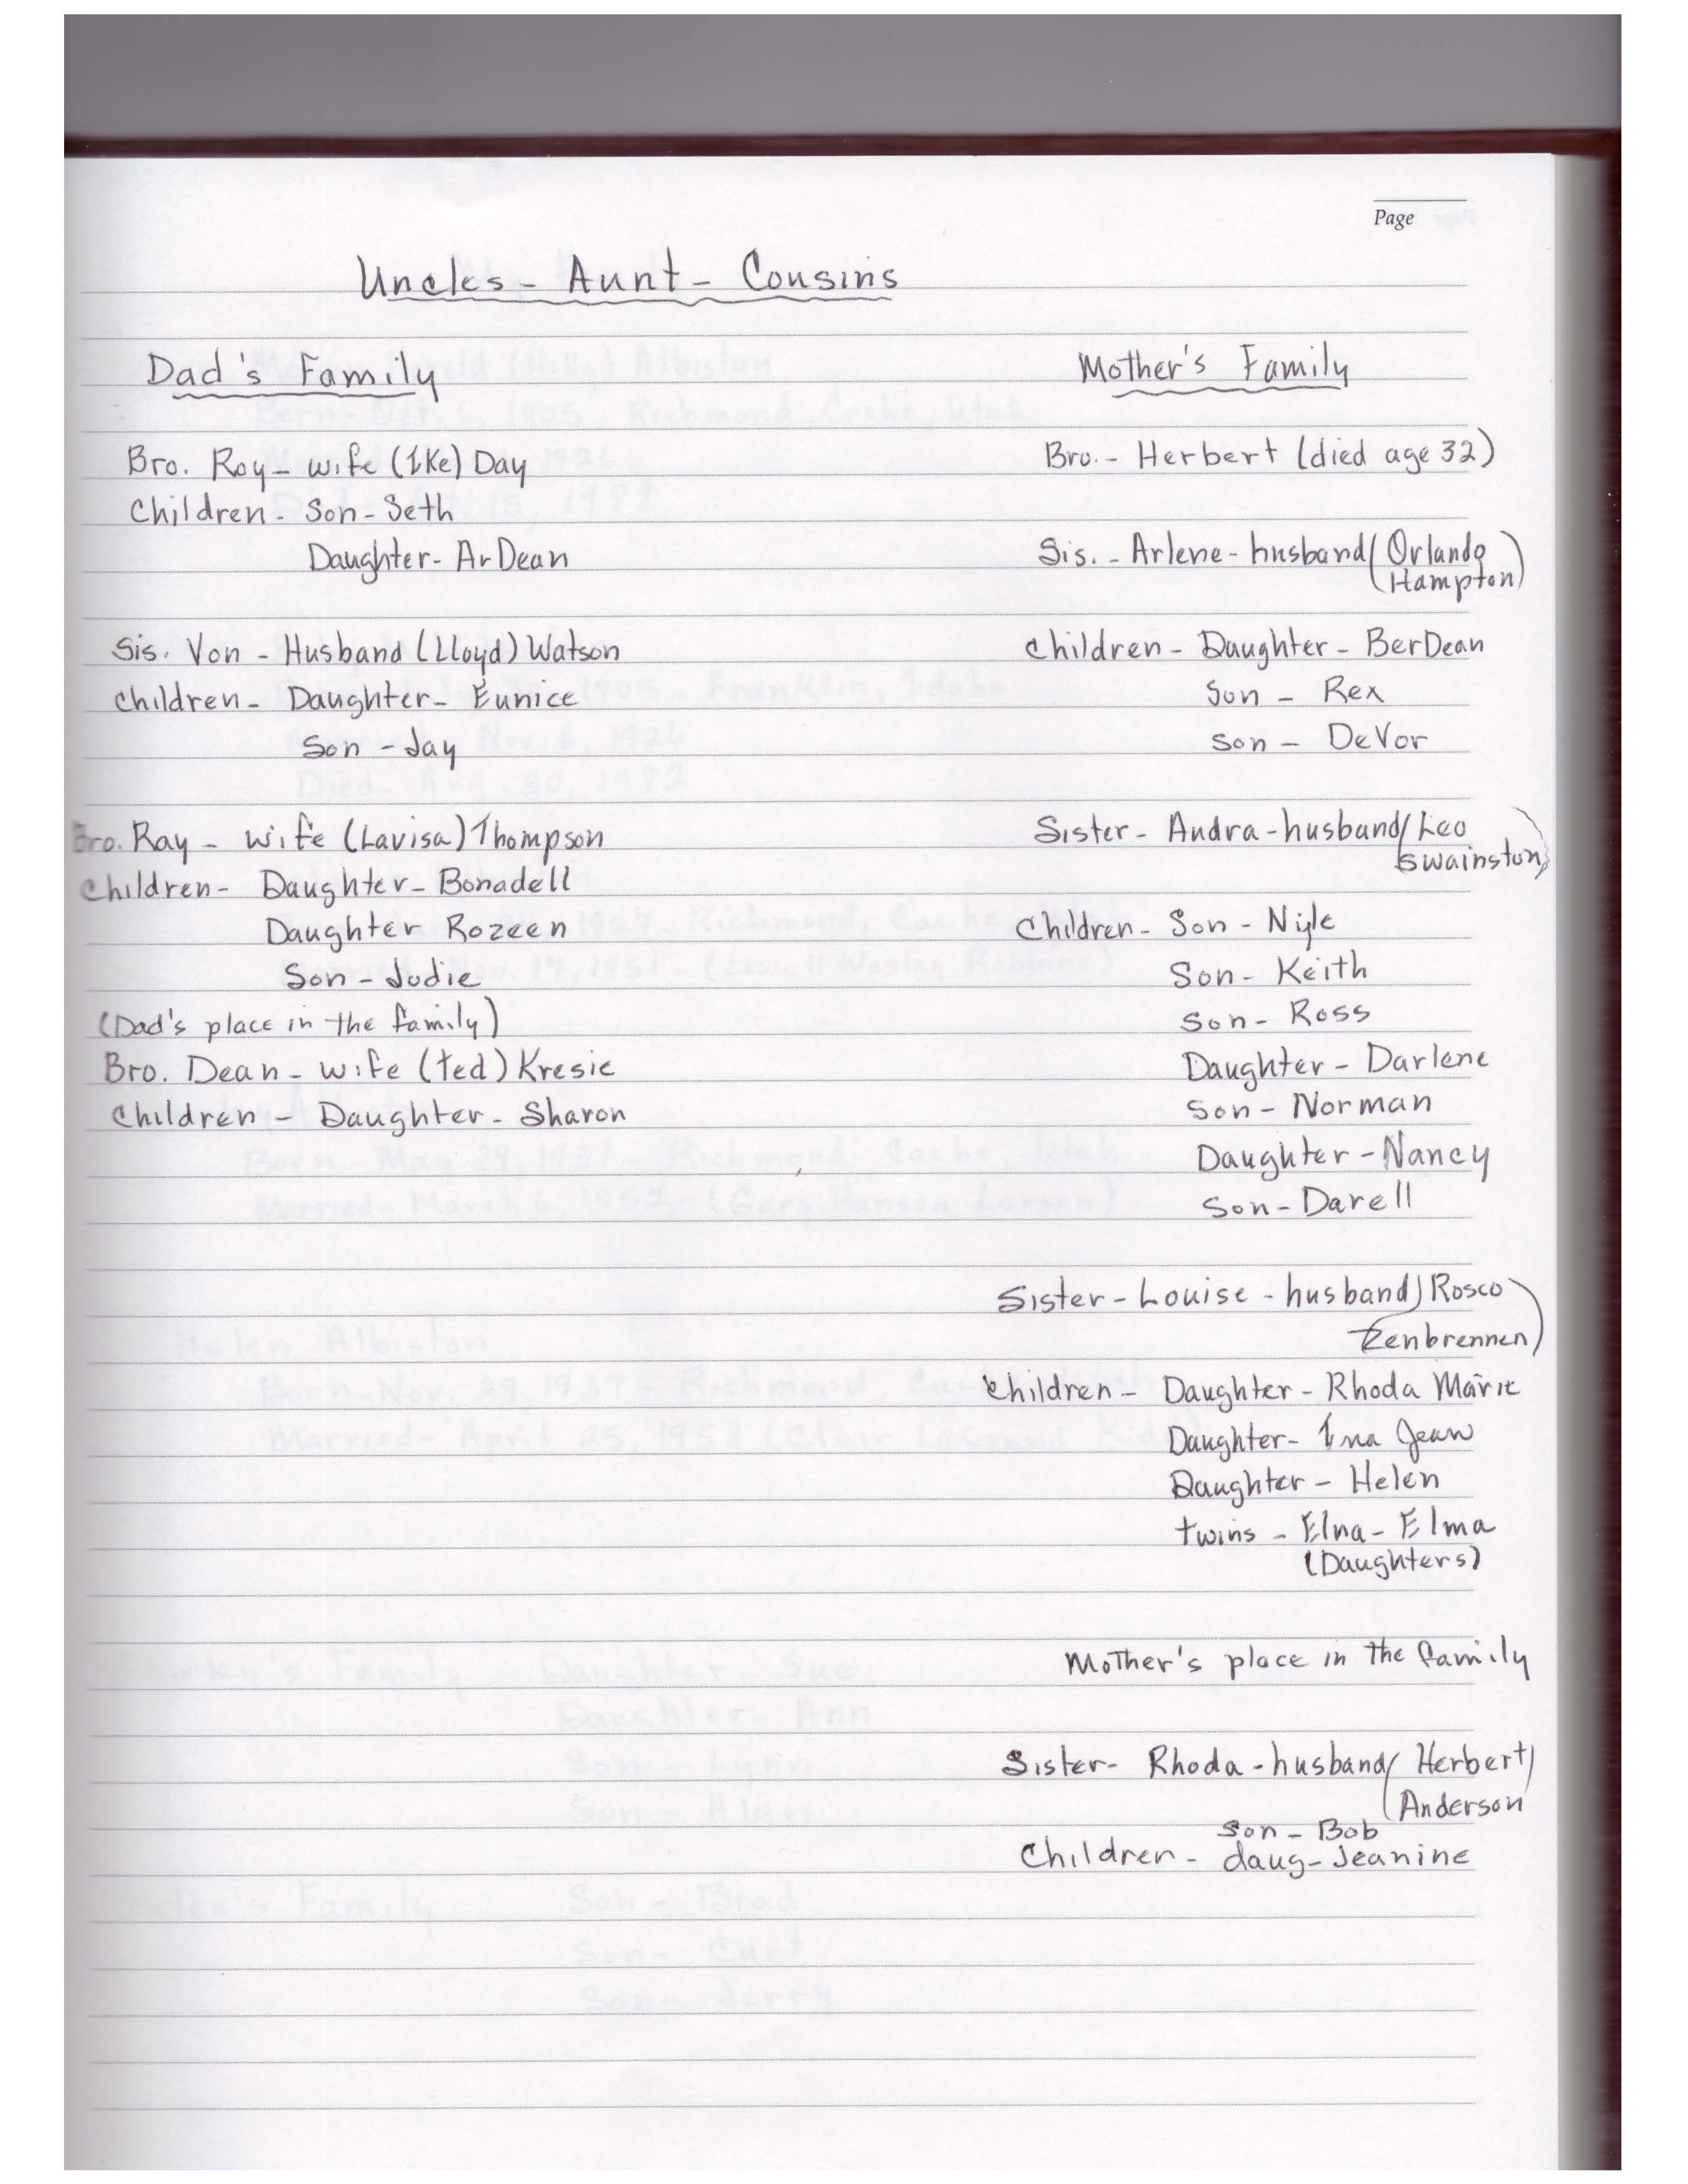 Page
Uncles - Aunt - Cousins
Dad's Family
Bro. Roy - wife (Ike) Day
Children - Son - Seth
Daughter - ArDean
Sis. Von - Husband (Lloyd) Watson
Children - Daughter - Eunice
Son - Jay
Bro. Ray - wife (Lavisa) Thompson
Children - Daughter - Bonadell
Daughter Rozeen
Son - Judie
(Dad's place in the family)
Bro. Dean - wife (ted) Kresie
Children - Daughter - Sharon
Mother's Family
Bro. - Herbert (died age 32)
Sis. - Arlene - husband (Orlando
Hampton)
Children - Daughter - BerDean
Son - Rex
Son - DeVor
Sister - Audra - husband (Leo
Swainston)
Children - Son - Nyle
Son - Keith
Son - Ross
Daughter - Darlene
Son - Norman
Daughter - Nancy
Son - Darell
Sister - Louise - husband (Rosco
Zenbrennen)
Children - Daughter - Rhoda Marie
Daughter - Ina Jean
Daughter - Helen
twins - Elna - Elma
(Daughters)
Mother's place in the family
Sister - Rhoda - husband (Herbert)
Anderson
Son - Bob
Children - daug - Jeanine